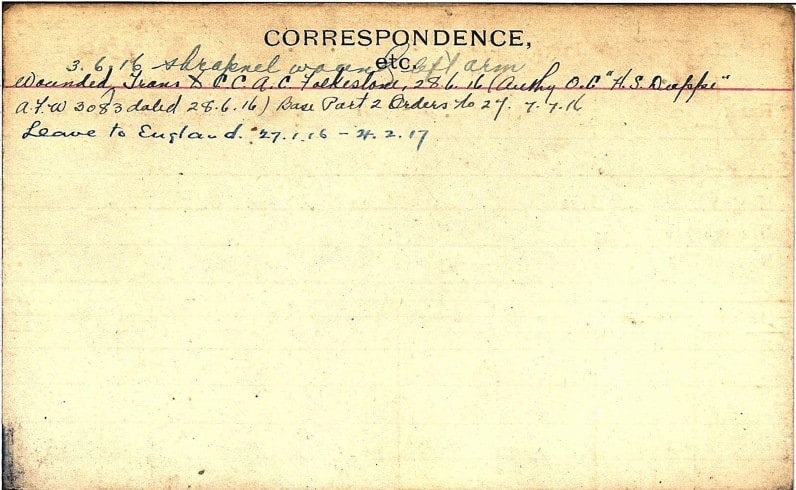 CORRESPONDENCE,
etc.
3.6.16 shrapnel left arm
Wounded, Trans to C.C.A.C Folkestone, 28.6.16 (Authy O.C "H.S. Dieppe"
A.F.W 3083 dated 28.6.16) Base Part 2 Orders No 27. 7.7.16
Leave to England. 27.1.16 - 4.2.17